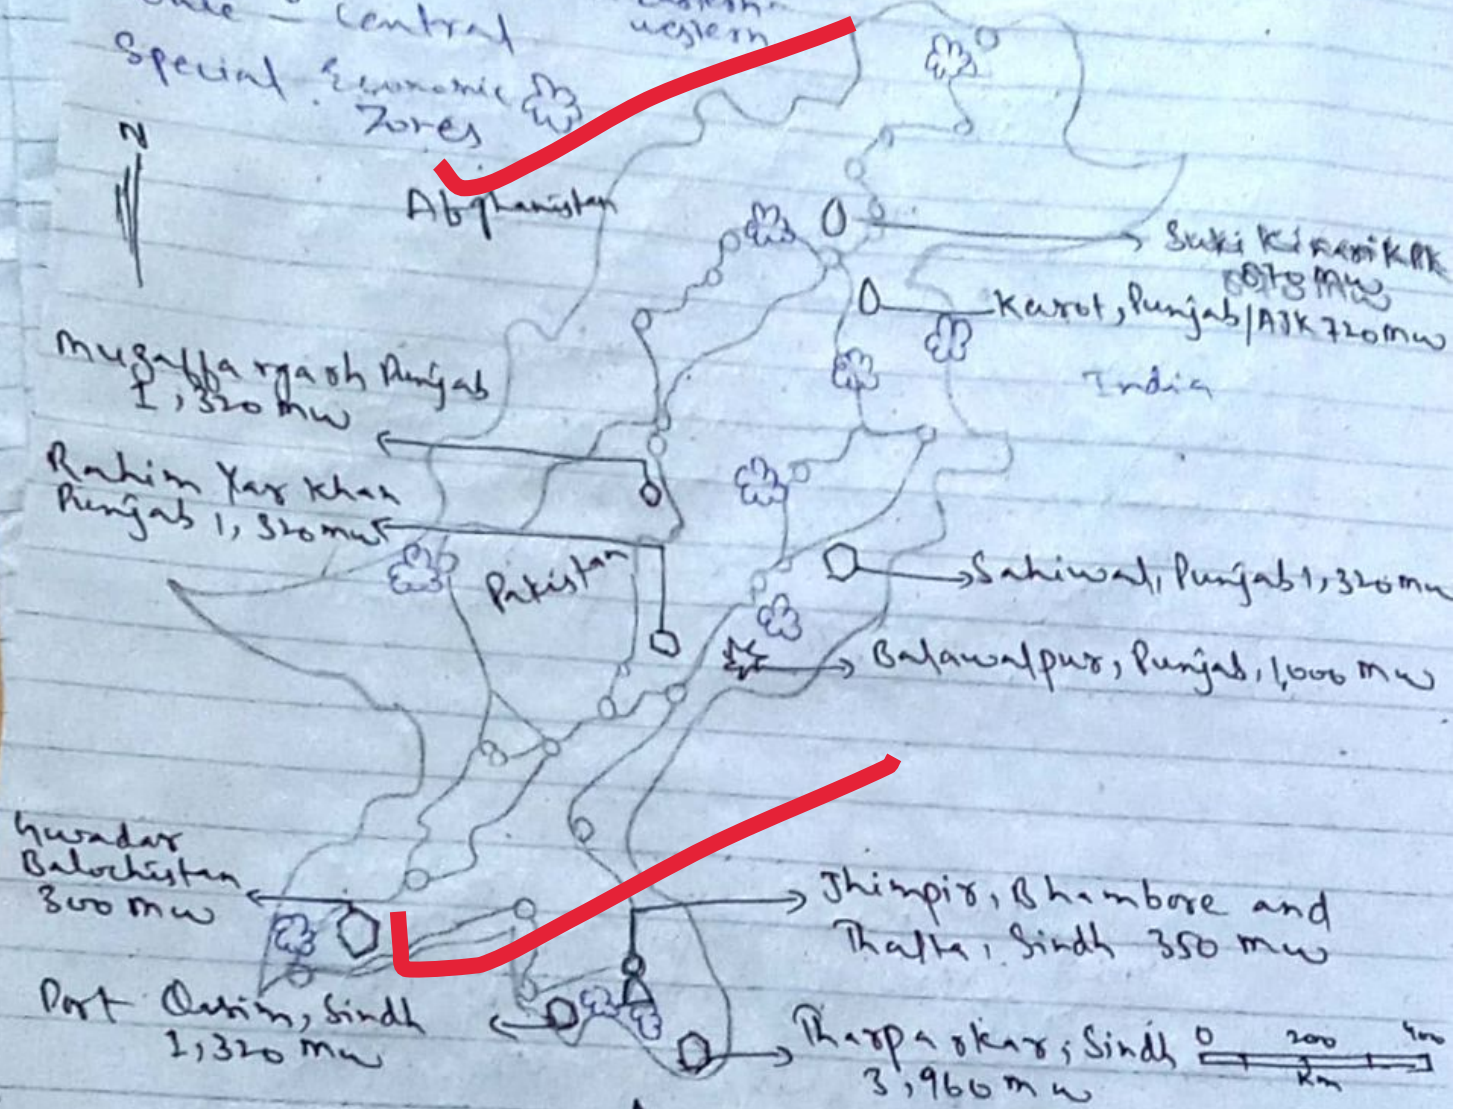 Central
western
Special Economic
Zones
N
Abghanistan
Suki Kinari KPK
Karot, Punjab/AJK 720 mw
Muzaffargarh Punjab
1,320 mw
India
Rahim Yar Khan
Punjab 1,320 mw
Pakistan
Sahiwal, Punjab 1,320 mw
Balawalpur, Punjab, 1,000 mw
Gwadar
Balochistan
300 mw
Jhimpir, Bhambore and
Thatta, Sindh 350 mw
Port Qasim, Sindh
1,320 mw
Tharparkar, Sindh
3,960 mw
0 200 400
Km